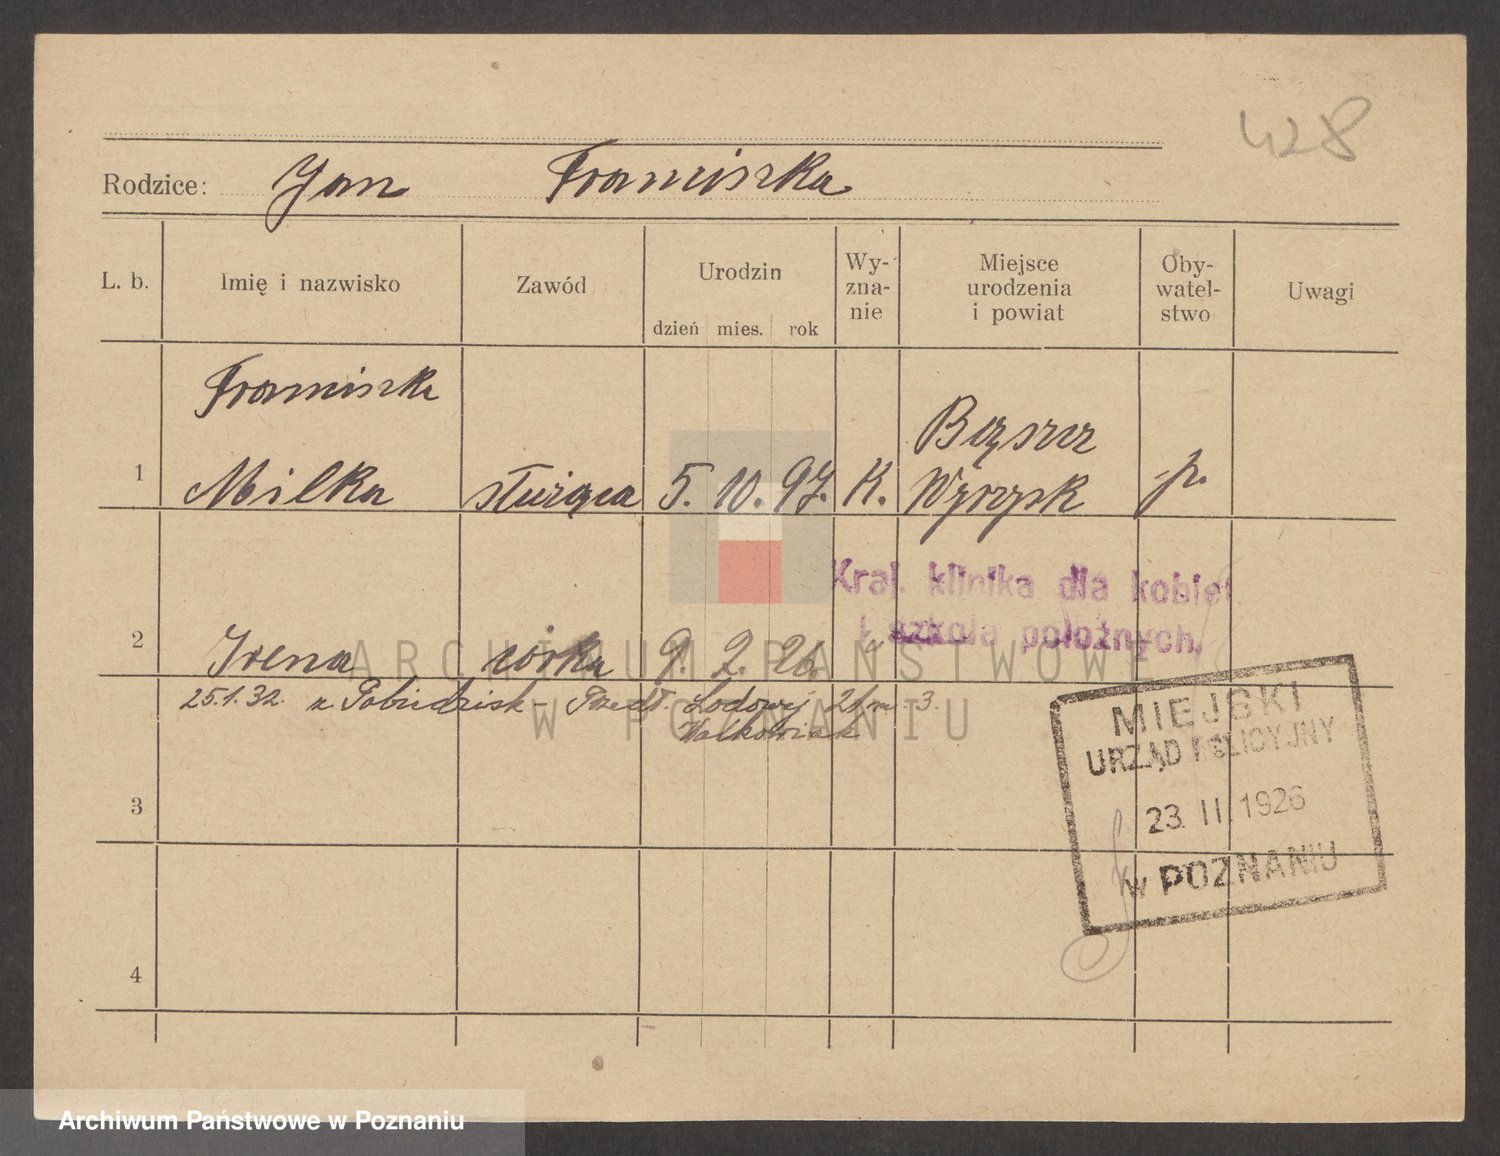 428
Rodzice: Jan Franciszka
L. b. Imię i nazwisko Zawód Urodzin Wy-zna-nie Miejsce urodzenia i powiat Oby-watel-stwo Uwagi
dzień mies. rok
Franciszka
Bąszcz
1 Milka służąca 5. 10. 97. K. Wyrzysk p.
Kraj. klinika dla kobiet
i szkola położnych.
2 Irena córka 9. 2. 26. "
25.1.32. z Pobiedzisk - Lodowej 26 m. 3.
Walkowiak
MIEJSKI
URZĄD POLICYJNY
23. II. 1926
w POZNANIU
3
4
ARCHIWUM PAŃSTWOWE
W POZNANIU
Archiwum Państwowe w Poznaniu